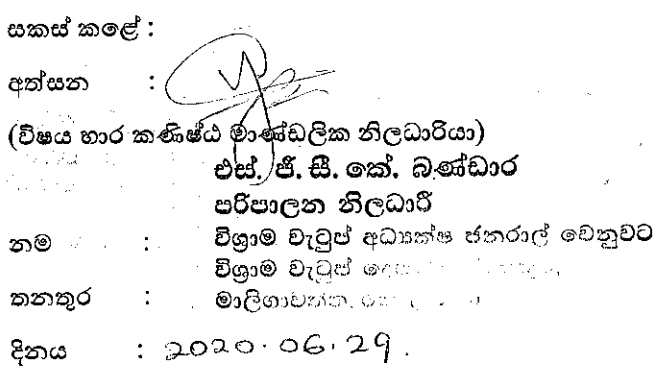 සකස් කළේ :
අත්සන :
(විෂය භාර කණිෂ්ඨ මාණ්ඩලික නිලධාරියා)
එස්. ජී. සී. කේ. බණ්ඩාර
පරිපාලන නිලධාරී
නම : විශ්‍රාම වැටුප් අධ්‍යක්ෂ ජනරාල් වෙනුවට
විශ්‍රාම වැටුප්
තනතුර : මාලිගාවත්ත,
දිනය : 2020.06.29.